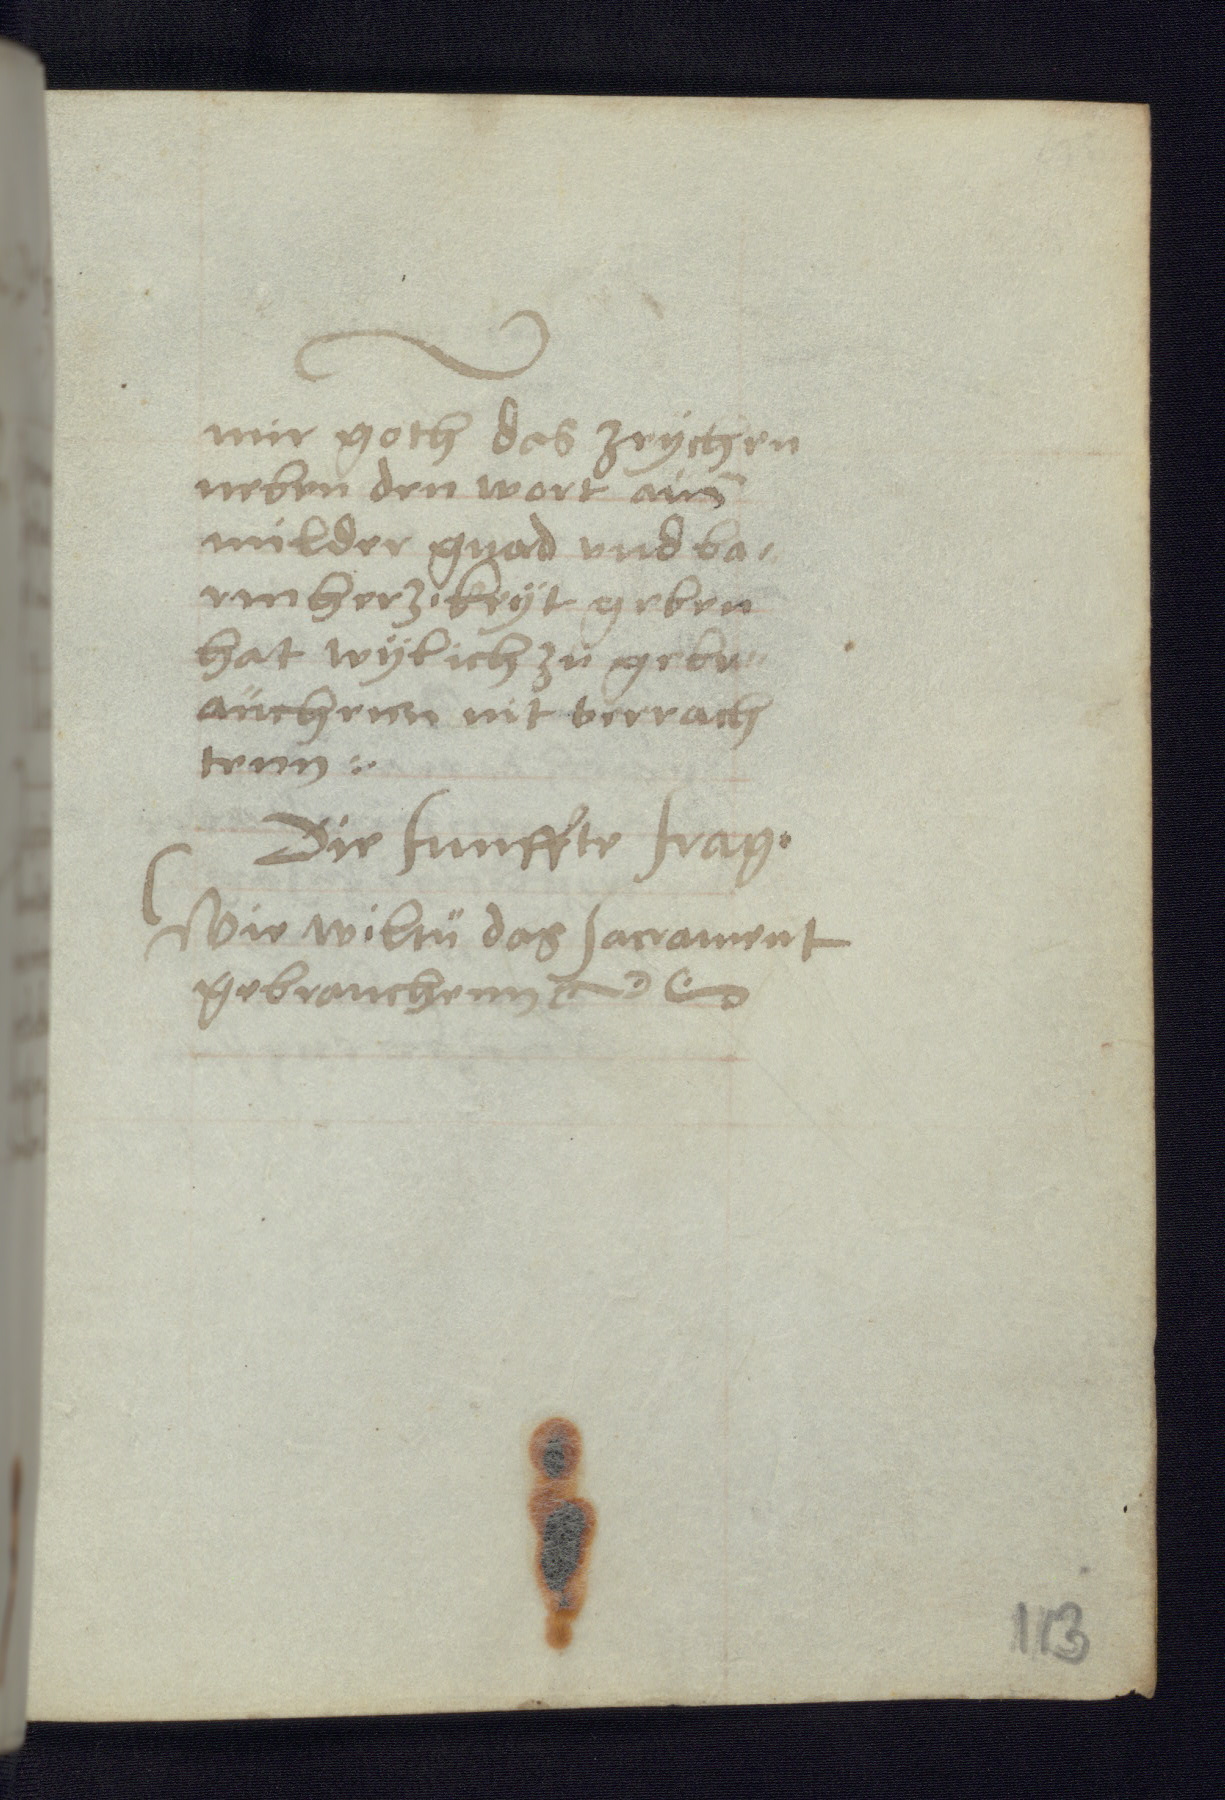 mir goth das zeychen
neben den wort auß
milder gnad und ba⸗
rmherzikeÿt geben
hat wÿlich zu gebr⸗
aüchenn nit verrach
tenn :.
Die funffte frag.
Wie wiltü das sacrament
gebrauchenn
113